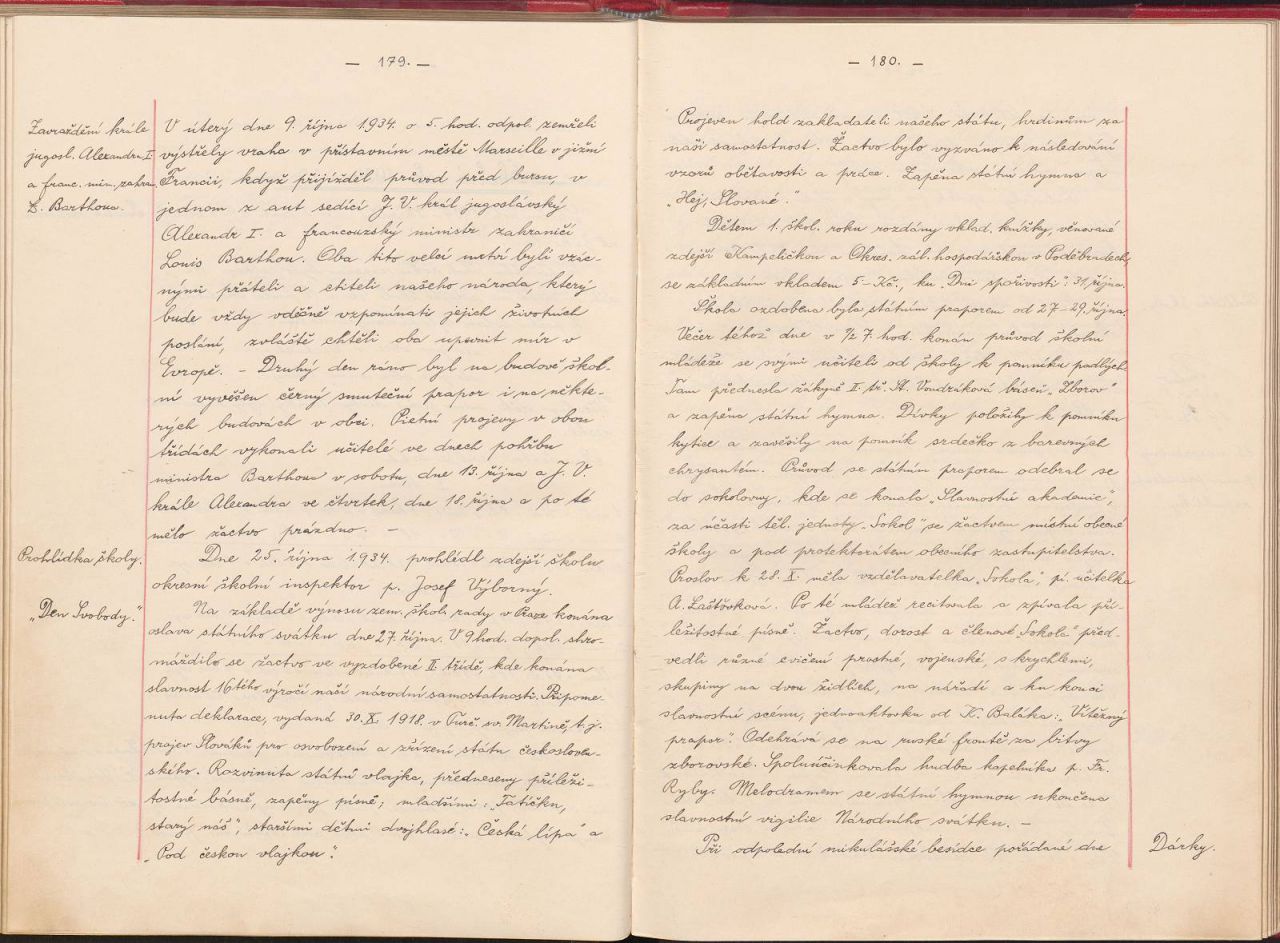 — 179. —
Zavraždění krále
jugosl. Alexandra I.
a franc. min. zahran.
L. Barthoua.
V úterý dne 9. října 1934. o 5. hod. odpol. zemřeli
výstřely vraha v přístavním městě Marseille v jižní
Francii, když přijížděl průvod před bursu, v
jednom z aut sedící J. V. král jugoslávský
Alexandr I. a francouzský ministr zahraničí
Louis Barthou. Oba tito velcí mrtví byli vzác-
nými přáteli a ctiteli našeho národa, který
bude vždy vděčně vzpomínati jejich životních
poslání, zvláště chtěli oba upevnit mír v
Evropě. – Druhý den ráno byl na budově škol-
ní vyvěšen černý smuteční prapor i na někte-
rých budovách v obci. Pietní projevy v obou
třídách vykonali učitelé ve dnech pohřbu
ministra Barthoua v sobotu, dne 13. října a J. V.
krále Alexandra ve čtvrtek, dne 18. října a po té
mělo žactvo prázdno. –
Prohlídka školy.
Dne 25. října 1934. prohlédl zdejší školu
okresní školní inspektor p. Josef Výborný.
„Den Svobody."
Na základě výnosu zem. škol. rady v Praze konána
oslava státního svátku dne 27. října. V 9 hod. dopol. shro-
máždilo se žactvo ve vyzdobené II. třídě, kde konána
slavnost 16tého výročí naší národní samostatnosti. Připome-
nuta deklarace, vydaná 30. X. 1918. v Turč. sv. Martině, t. j.
projev Slováků pro osvobození a zřízení státu českosloven-
ského. Rozvinuta státní vlajka, předneseny příleži-
tostné básně, zapěny písně; mladšími: „Tatíčku,
starý náš", staršími dětmi dvojhlasé: „Česká lípa" a
„Pod českou vlajkou".
— 180. —
Projeven hold zakladateli našeho státu, hrdinům za
naši samostatnost. Žactvo bylo vyzváno k následování
vzorů obětavosti a práce. Zapěna státní hymna a
„Hej, Slované".
Dětem 1. škol. roku rozdány vklad. knížky, věnované
zdejší Kampeličkou a Okres. zál. hospodářskou v Poděbradech,
se základním vkladem 5 – Kč., ku „Dni spořivosti": 31. října.
Škola ozdobena byla státním praporem od 27 – 29. října.
Večer téhož dne v ½ 7. hod. konán průvod školní
mládeže se svými učiteli od školy k pomníku padlých.
Tam přednesla žákyně II. tř. A. Vondráková báseň „Zborov"
a zapěna státní hymna. Dívky položily k pomníku
kytice a zavěsily na pomník srdečko z barevných
chrysantém. Průvod se státním praporem odebral se
do sokolovny, kde se konala „Slavnostní akademie",
za účasti těl. jednoty „Sokol" se žactvem místní obecné
školy a pod protektorátem obecního zastupitelstva.
Proslov k 28. X. měla vzdělavatelka „Sokola", pí. učitelka
A. Laštovková. Po té mládež recitovala a zpívala pří-
ležitostné písně. Žactvo, dorost a členové „Sokola" před-
vedli různé cvičení prostné, vojenské, s krychlemi,
skupiny na dvou židlích, na nářadí a ku konci
slavnostní scénu, jednoaktovku od K. Baláka: „Vítězný
prapor". Odehrává se na ruské frontě za bitvy
zborovské. Spoluúčinkovala hudba kapelníka p. Fr.
Ryby. Melodramem se státní hymnou ukončena
slavnostní vigilie Národního svátku. –
Při odpolední mikulášské besídce pořádané dne
Dárky.